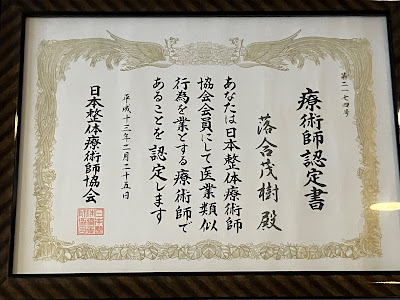 第二一七四号
療術師認定書
落合茂樹殿
あなたは日本整体療術師
協会会員にして医業類似
行為を業とする療術師で
あることを認定します
平成十三年二月二十五日
日本整体療術師協会